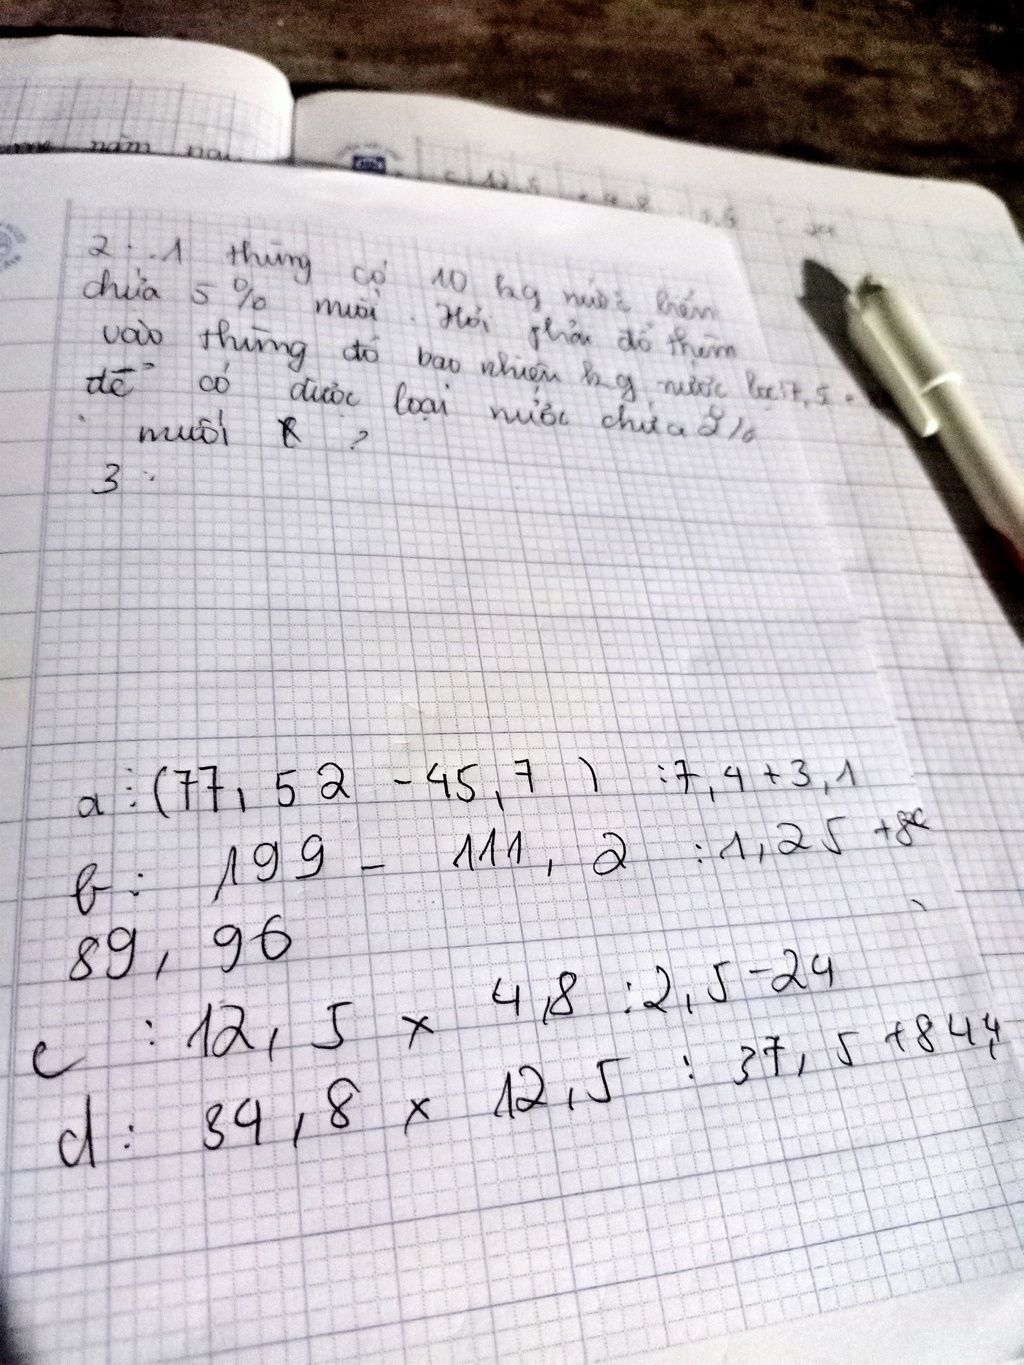 năm
2 : 1 thùng có 10 kg nước biển
chứa 5 % muối. Hỏi phải đổ thêm
vào thùng đó bao nhiêu kg nước lọc
để có được loại nước chứa 2%
muối ?
3 :
a : (77, 52 - 45, 7 ) : 7, 4 + 3, 1
b : 199 - 111, 2 : 1, 25 +
89, 96
c : 12, 5 x 4,8 : 2, 5 - 24
d : 34, 8 x 12, 5 : 37, 5 + 844,